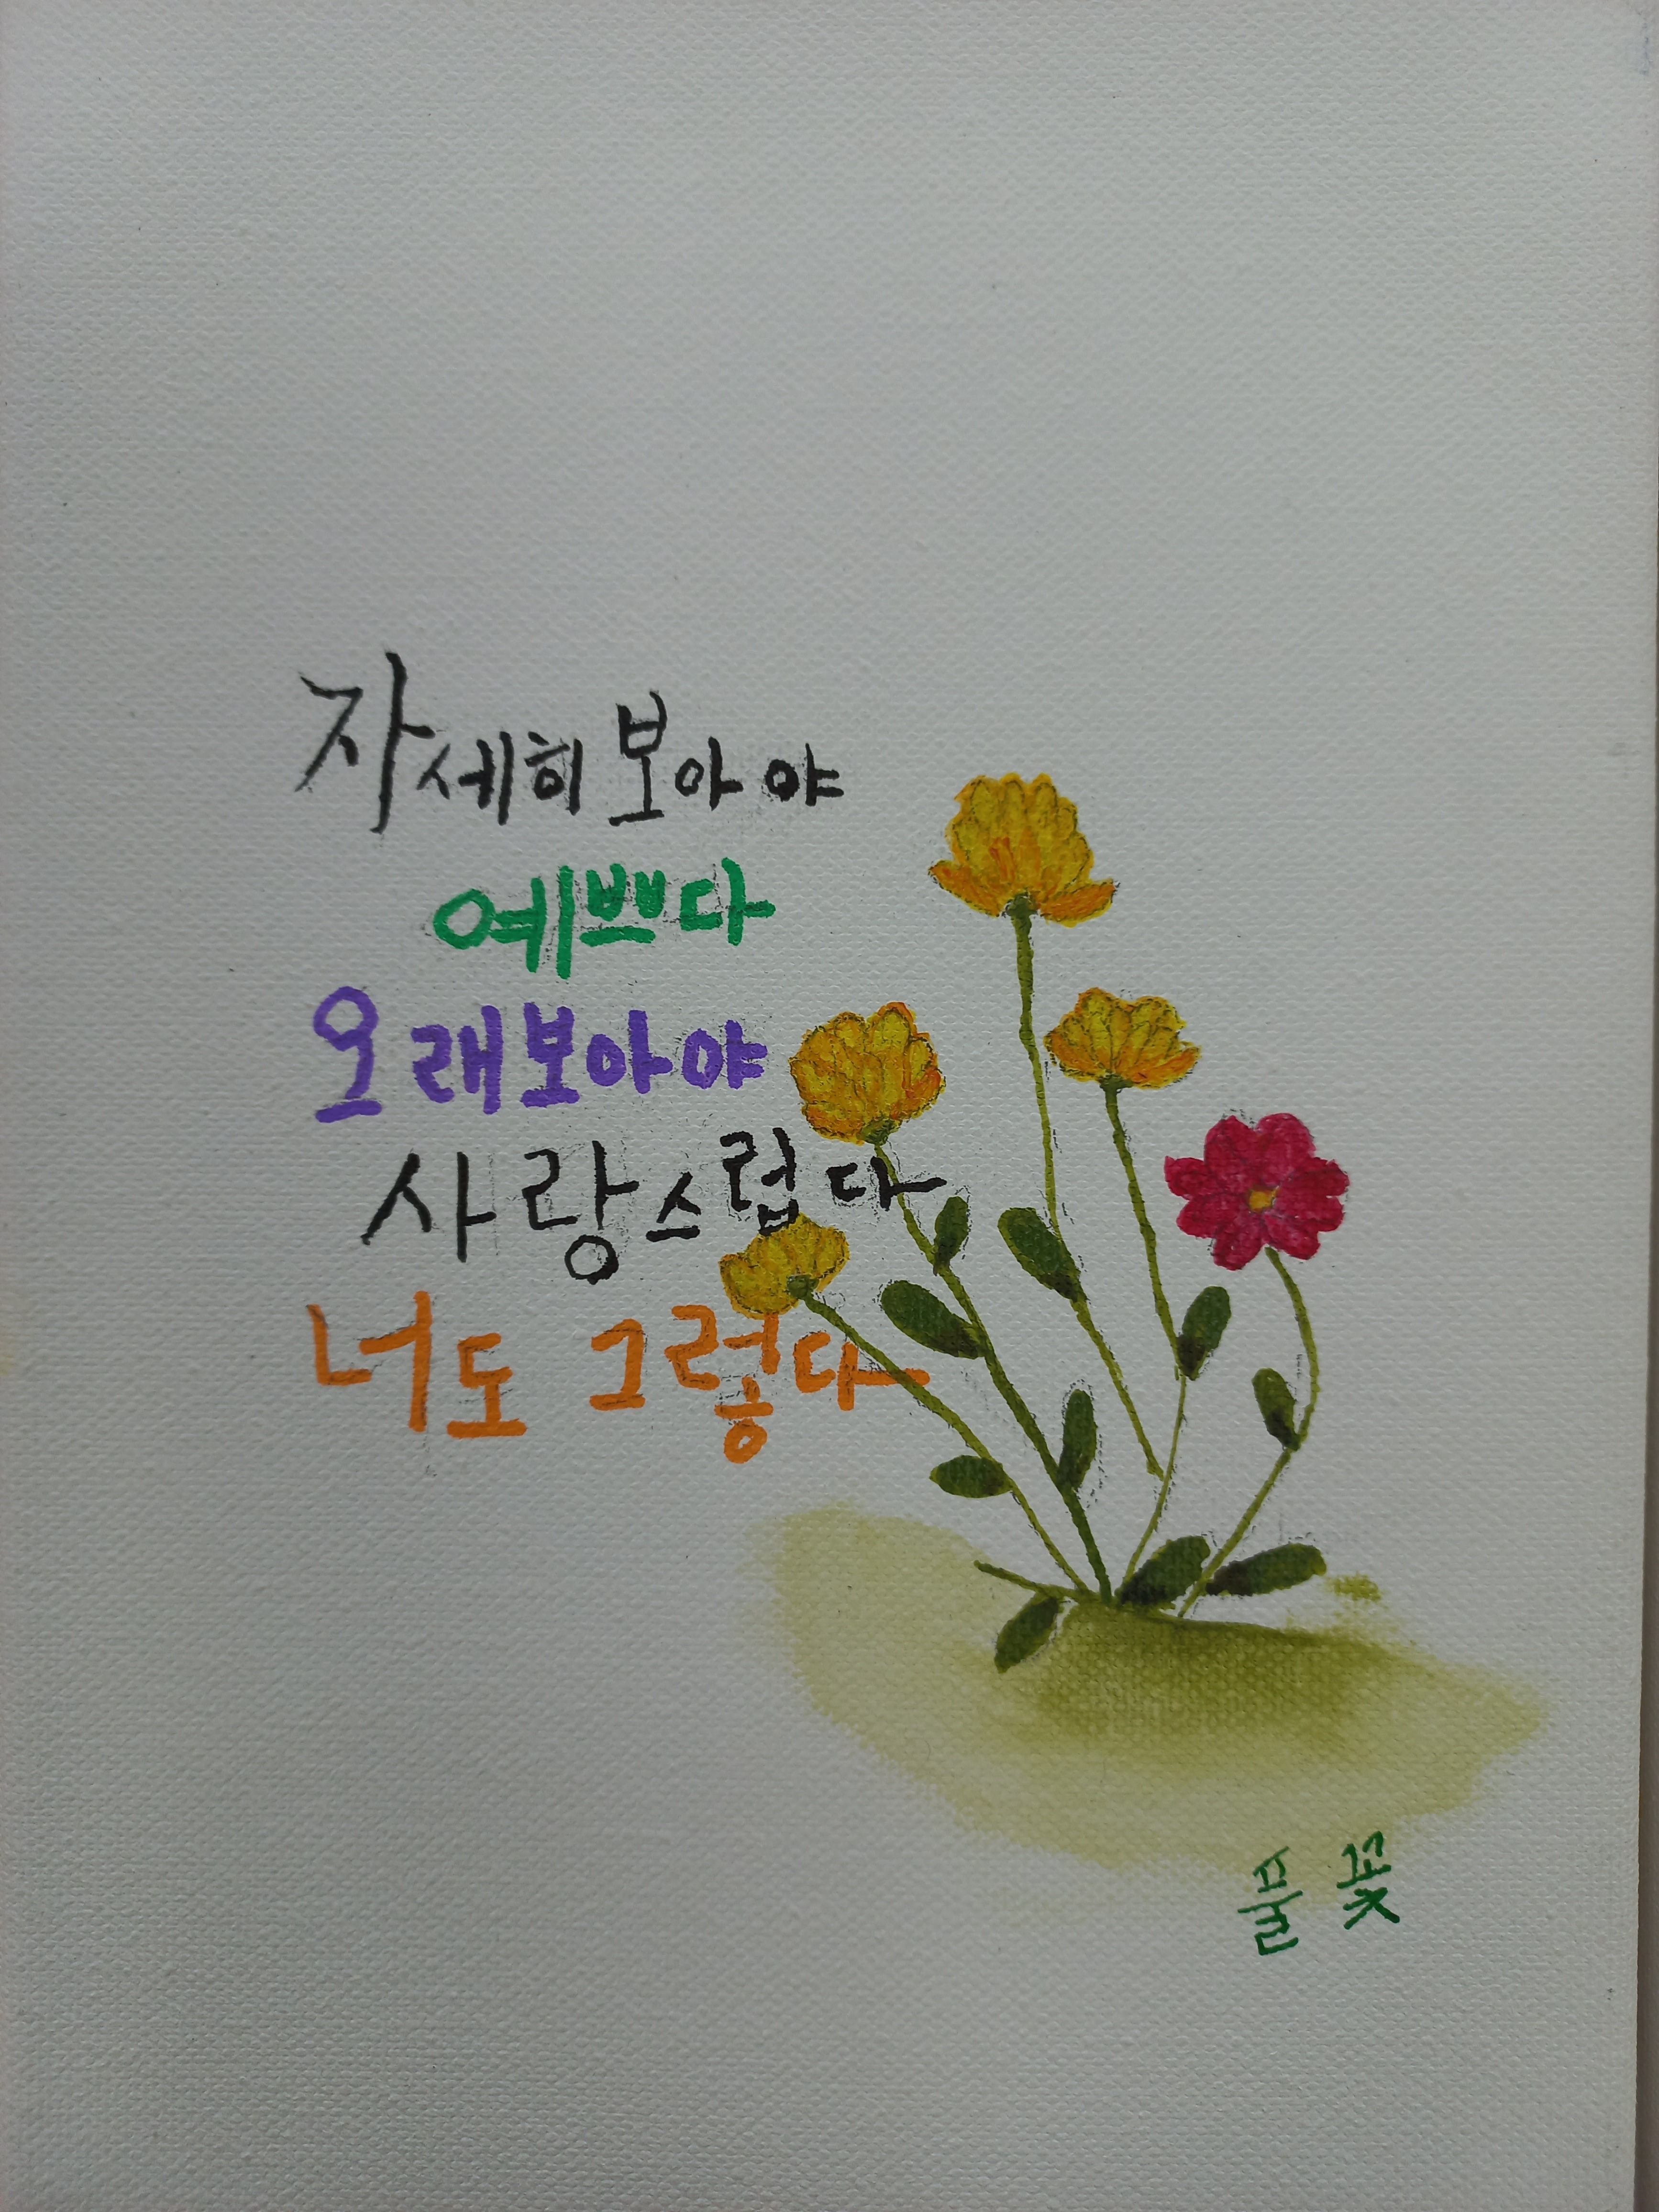 자세히 보아야
예쁘다
오래보아야
사랑스럽다
너도 그렇다
풀꽃